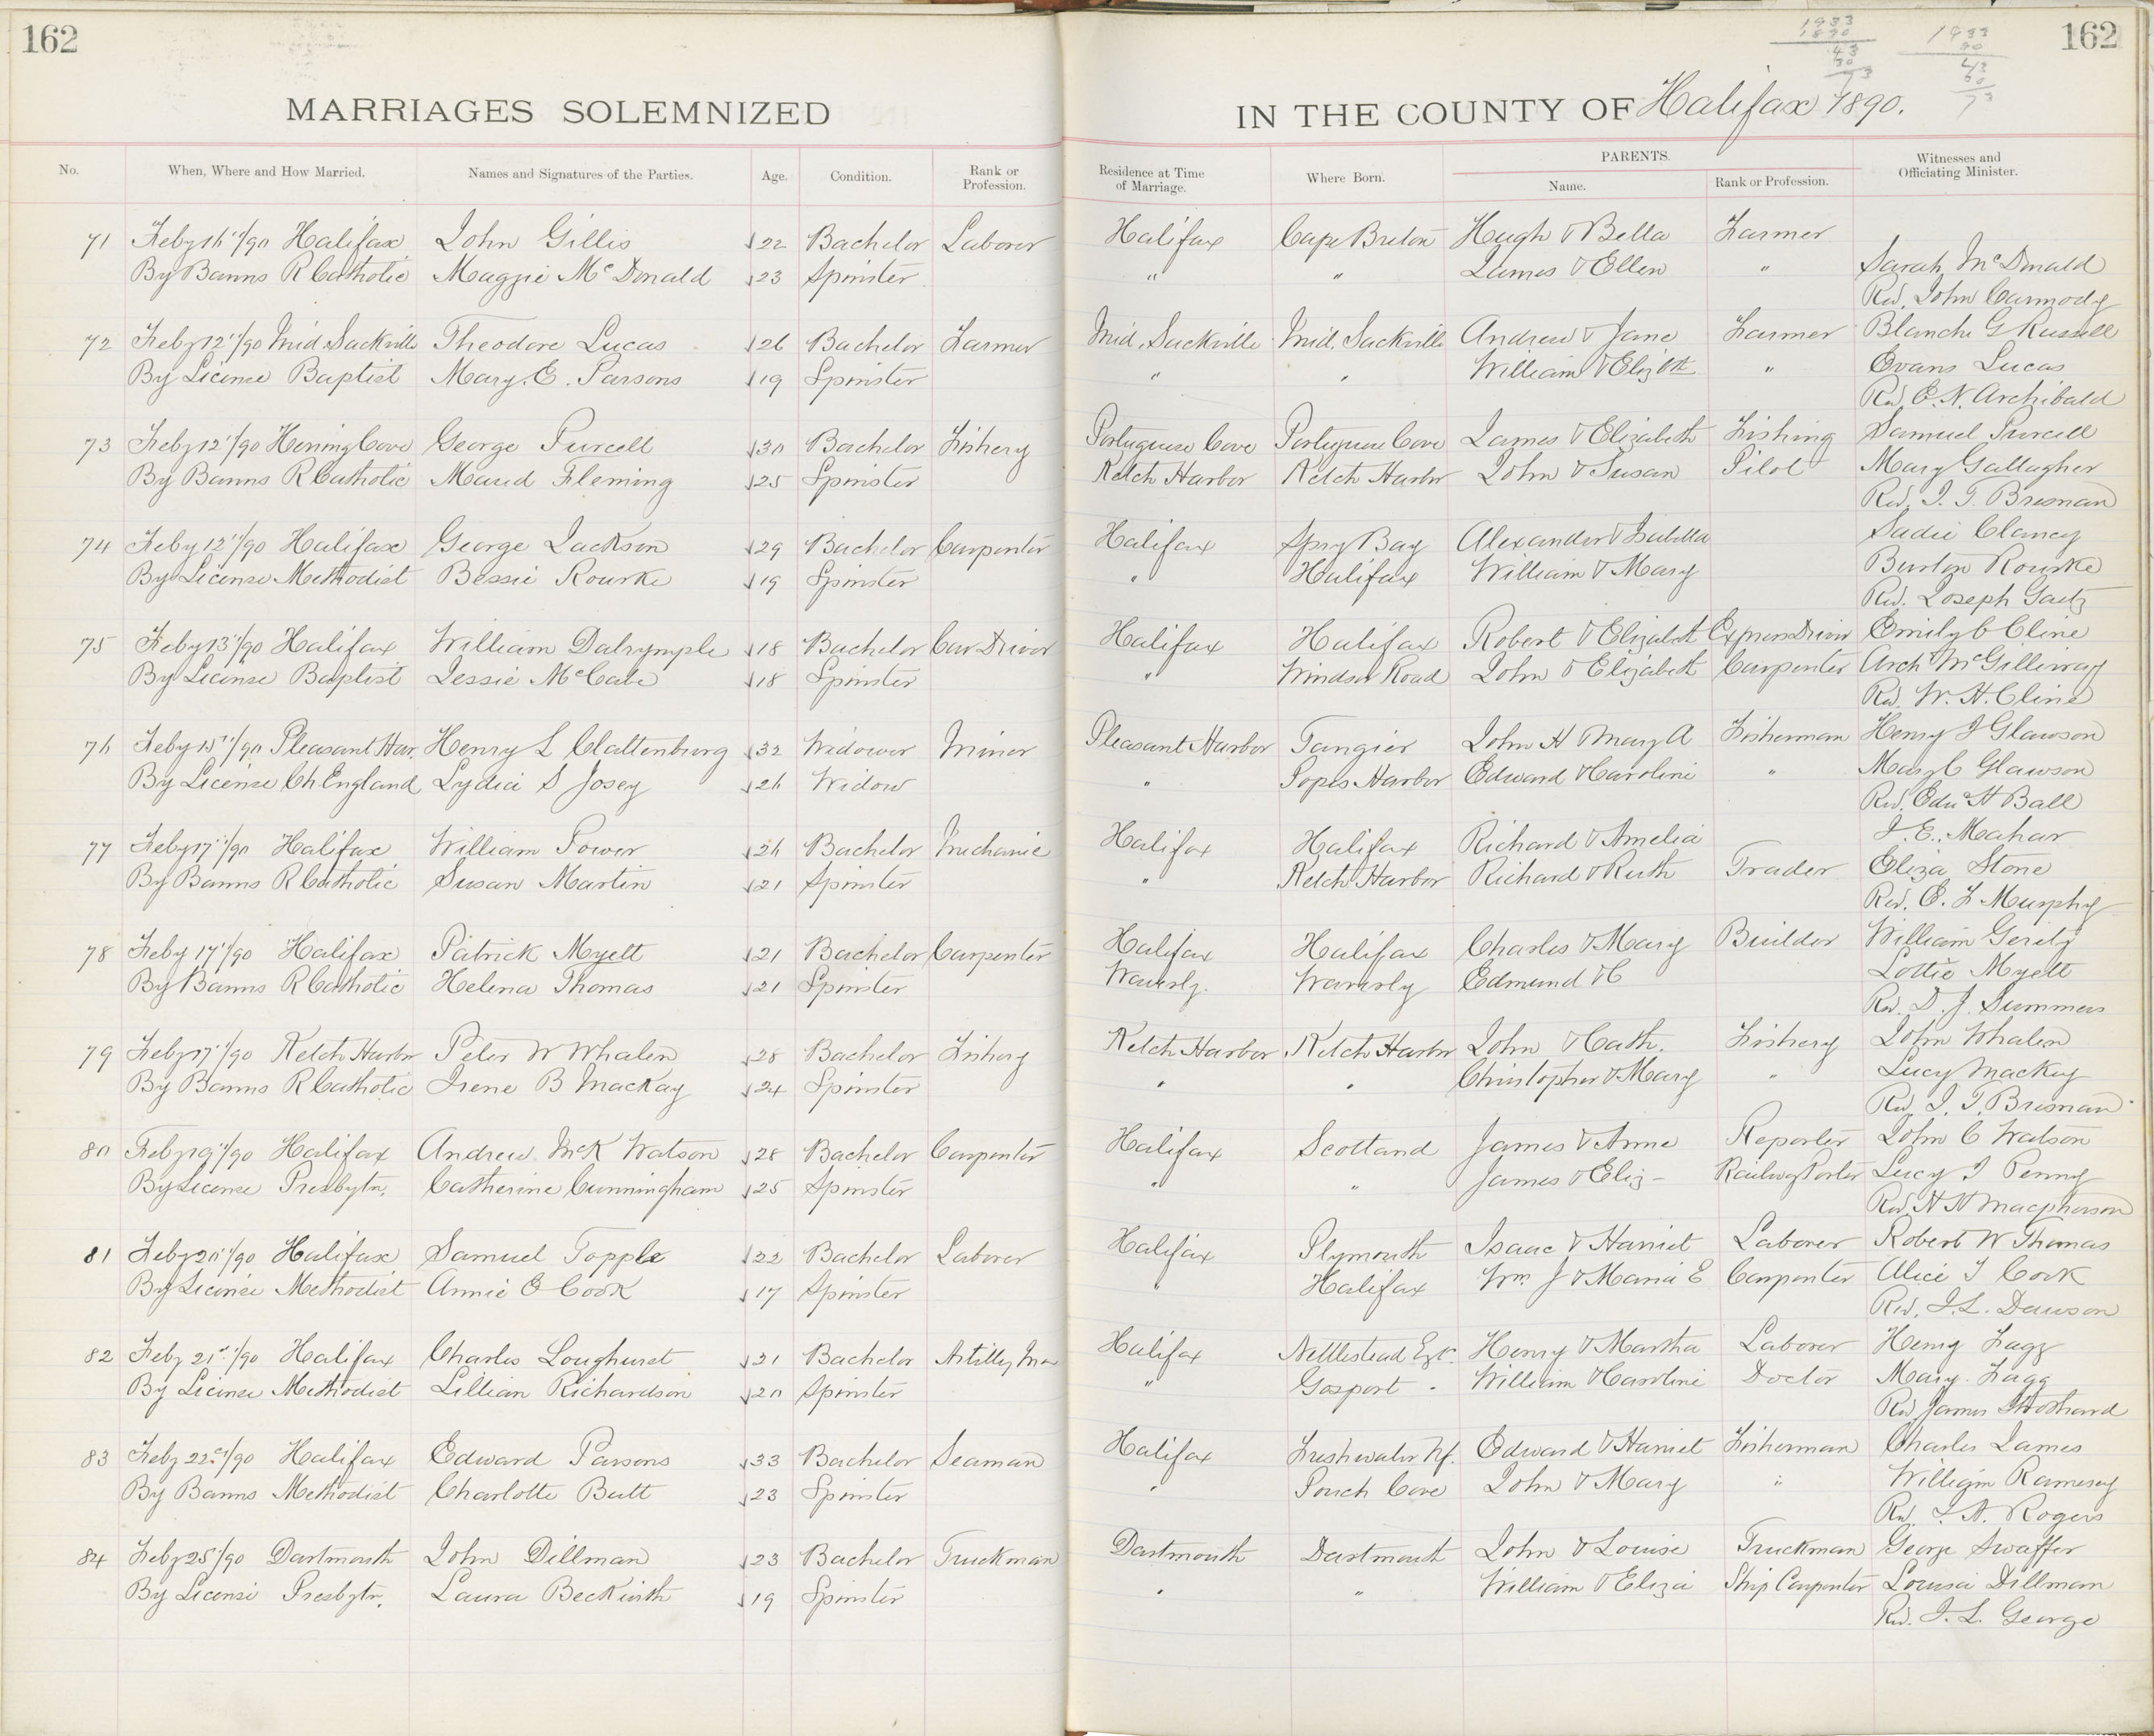 162
162
1933
1890
43
30
73
1933
90
43
30
73
MARRIAGES SOLEMNIZED
IN THE COUNTY OF Halifax 1890.
No. When, Where and How Married. Names and Signatures of the Parties. Age. Condition. Rank or Profession. Residence at Time of Marriage. Where Born. PARENTS. Name. Rank or Profession. Witnesses and Officiating Minister.
71 Feby 16"/90 Halifax John Gillis 22 Bachelor Laborer Halifax Cape Breton Hugh & Bella Farmer
By Banns R Catholic Maggie McDonald 23 Spinster " " James & Ellen " Sarah McDonald
Rev. John Carmody
72 Feby 12"/90 Mid. Sackville Theodore Lucas 26 Bachelor Farmer Mid. Sackville Mid. Sackville Andrew & Jane Farmer Blanche G Russell
By License Baptist Mary. E. Parsons 19 Spinster " " William & Elizbth " Evans Lucas
Rev. E. N. Archibald
73 Feby 12"/90 Herring Cove George Purcell 30 Bachelor Fishery Portuguese Cove Portuguese Cove James & Elizabeth Fishing Samuel Purcell
By Banns R Catholic Maud Fleming 25 Spinster Ketch Harbor Ketch Harbor John & Susan Pilot Mary Gallagher
Rev. J. T. Bresnan
74 Feby 12"/90 Halifax George Jackson 29 Bachelor Carpenter Halifax Spry Bay Alexander & Isabella Sadie Clancy
By License Methodist Bessie Rourke 19 Spinster " Halifax William & Mary Burton Rourke
Rev. Joseph Gaetz
75 Feby 13"/90 Halifax William Dalrymple 18 Bachelor Car Driver Halifax Halifax Robert & Elizabeth Express Driver Emily C Cline
By License Baptist Jessie McCabe 18 Spinster " Windsor Road John & Elizabeth Carpenter Arch McGillivray
Rev. W. H. Cline
76 Feby 15"/90 Pleasant Har. Henry L Clattenburg 32 Widower Miner Pleasant Harbor Tangier John H Mary A Fisherman Henry J Glawson
By License Ch England Lydia S Josey 26 Widow " Popes Harbor Edward & Caroline " Mary C Glawson
Rev. Edw H Ball
77 Feby 17"/90 Halifax William Power 26 Bachelor Mechanic Halifax Halifax Richard & Amelia J. E. Mahar
By Banns R Catholic Susan Martin 21 Spinster " Ketch Harbor Richard & Ruth Trader Eliza Stone
Rev. E. F Murphy
78 Feby 17"/90 Halifax Patrick Myett 21 Bachelor Carpenter Halifax Halifax Charles & Mary Builder William Gerity
By Banns R Catholic Helena Thomas 21 Spinster Waverly. Waverly Edmund & C Lottie Myett
Rev. D. J. Summers
79 Feby 17"/90 Ketch Harbor Peter W Whalen 28 Bachelor Fishery Ketch Harbor Ketch Harbor John & Cath. Fishery John Whalen
By Banns R Catholic Irene B MacKay 24 Spinster " " Christopher & Mary " Lucy Mackey
Rev. J. T. Bresnan
80 Feby 19"/90 Halifax Andrew McK Watson 28 Bachelor Carpenter Halifax Scotland James & Anne Reporter John C Watson
By License Presbytn. Catherine Cunningham 25 Spinster " " James & Eliz- Railway Porter Lucy J Penny
Rev. H H Macpherson
81 Feby 20"/90 Halifax Samuel Topple 22 Bachelor Laborer Halifax Plymouth Isaac & Harriet Laborer Robert W Thomas
By License Methodist Annie E Cook 17 Spinster " Halifax Wm J & Maria E Carpenter Alice T Cook
Rev. J. L. Dawson
82 Feby 21st/90 Halifax Charles Longhurst 31 Bachelor Artilley Man Halifax Nettlestead Henry & Martha Laborer Henry Fagg
By License Methodist Lillian Richardson 20 Spinster " Gosport William & Caroline Doctor Mary Fagg
Rev James
83 Feby 22"/90 Halifax Edward Parsons 33 Bachelor Seaman Halifax Freshwater Nf. Edward & Harriet Fisherman Charles James
By Banns Methodist Charlotte Butt 23 Spinster " Pouch Cove John & Mary " William Ramesey
Rev. J. A. Rogers
84 Feby 25"/90 Dartmouth John Dillman 23 Bachelor Truckman Dartmouth Dartmouth John & Louise Truckman George Swaffer
By License Presbytn. Laura Beckwith 19 Spinster " " William & Eliza Ship Carpenter Louisa Dillman
Rev. J. L. George